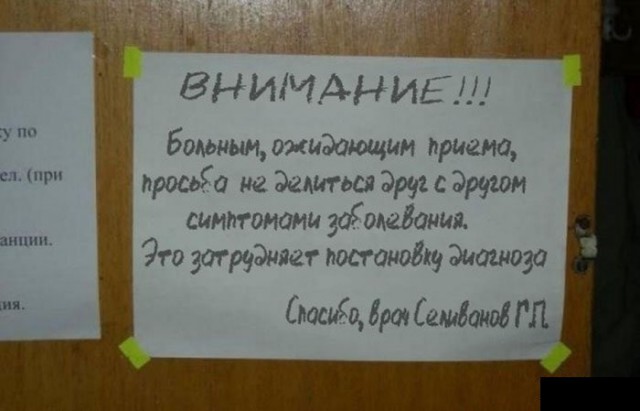 ВНИМАНИЕ!!!
Больным, ожидающим приема,
просьба не делиться друг с другом
симптомами заболевания.
Это затрудняет постановку диагноза
Спасибо, врач Селиванов Г.П.
су по
ел. (при
анции.
ия.